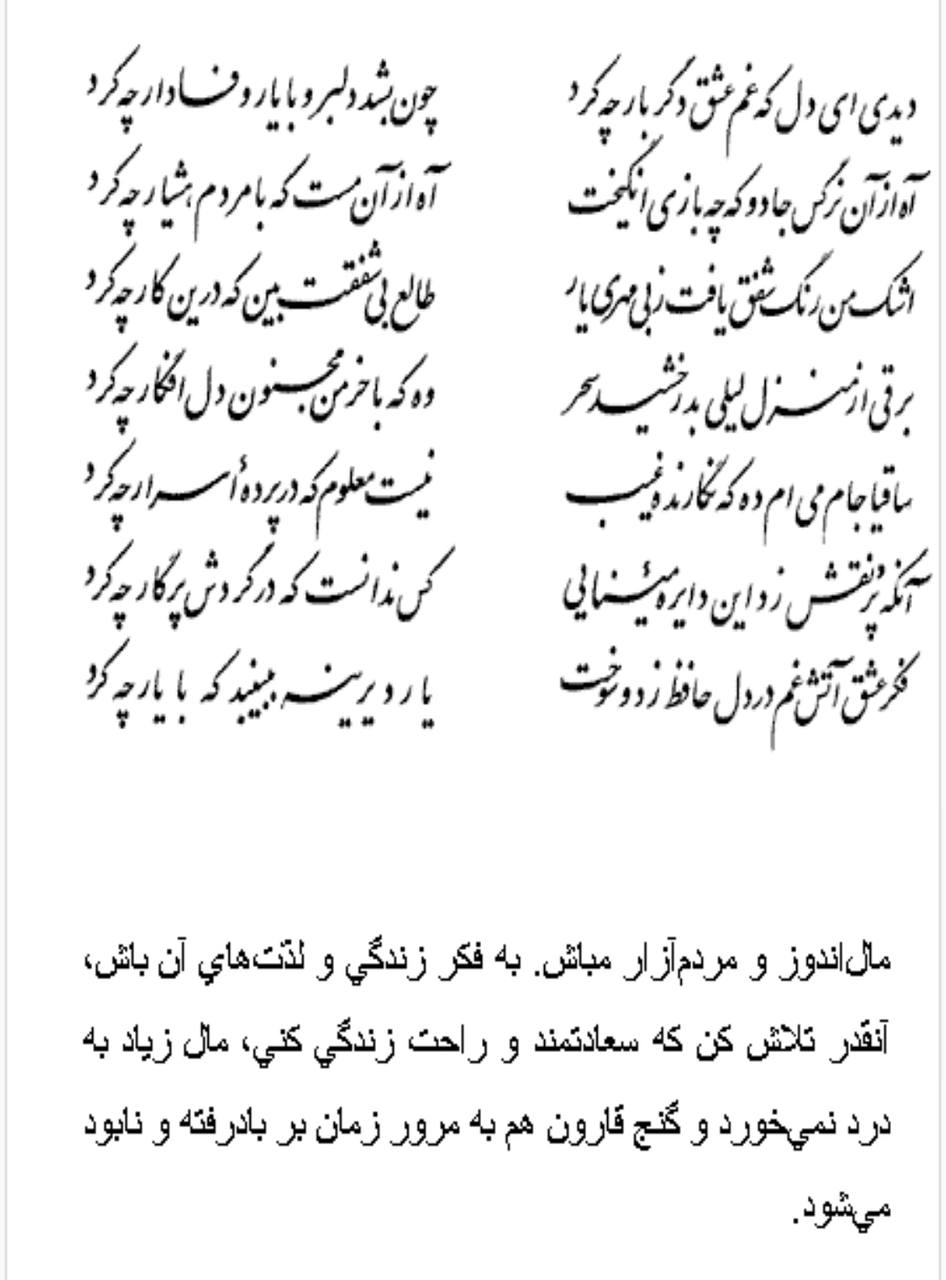 دیدی ای دل که غم عشق دگر بار چه کرد
چون بشد دلبر و با یار وفادار چه کرد
آه از آن نرگس جادو که چه بازی انگیخت
آه از آن مست که با مردم هشیار چه کرد
اشک من رنگ شفق یافت ز بی مهری یار
طالع بی شفقت بین که درین کار چه کرد
برقی از منزل لیلی بدرخشید سحر
وه که با خرمن مجنون دل افگار چه کرد
ساقیا جام می ام ده که نگارنده غیب
نیست معلوم که در پردهٔ اسرار چه کرد
آنکه پرنقش زد این دایره مینایی
کس ندانست که در گردش پرگار چه کرد
فکر عشق آتش غم در دل حافظ زد و سوخت
یار دیرینه ببینید که با یار چه کرد
مال‌اندوز و مردم‌آزار مباش. به فکر زندگي و لذّت‌هاي آن باش،
آنقدر تلاش كن كه سعادتمند و راحت زندگي كني، مال زياد به
درد نمي‌خورد و گنج قارون هم به مرور زمان بر بادرفته و نابود
مي‌شود.